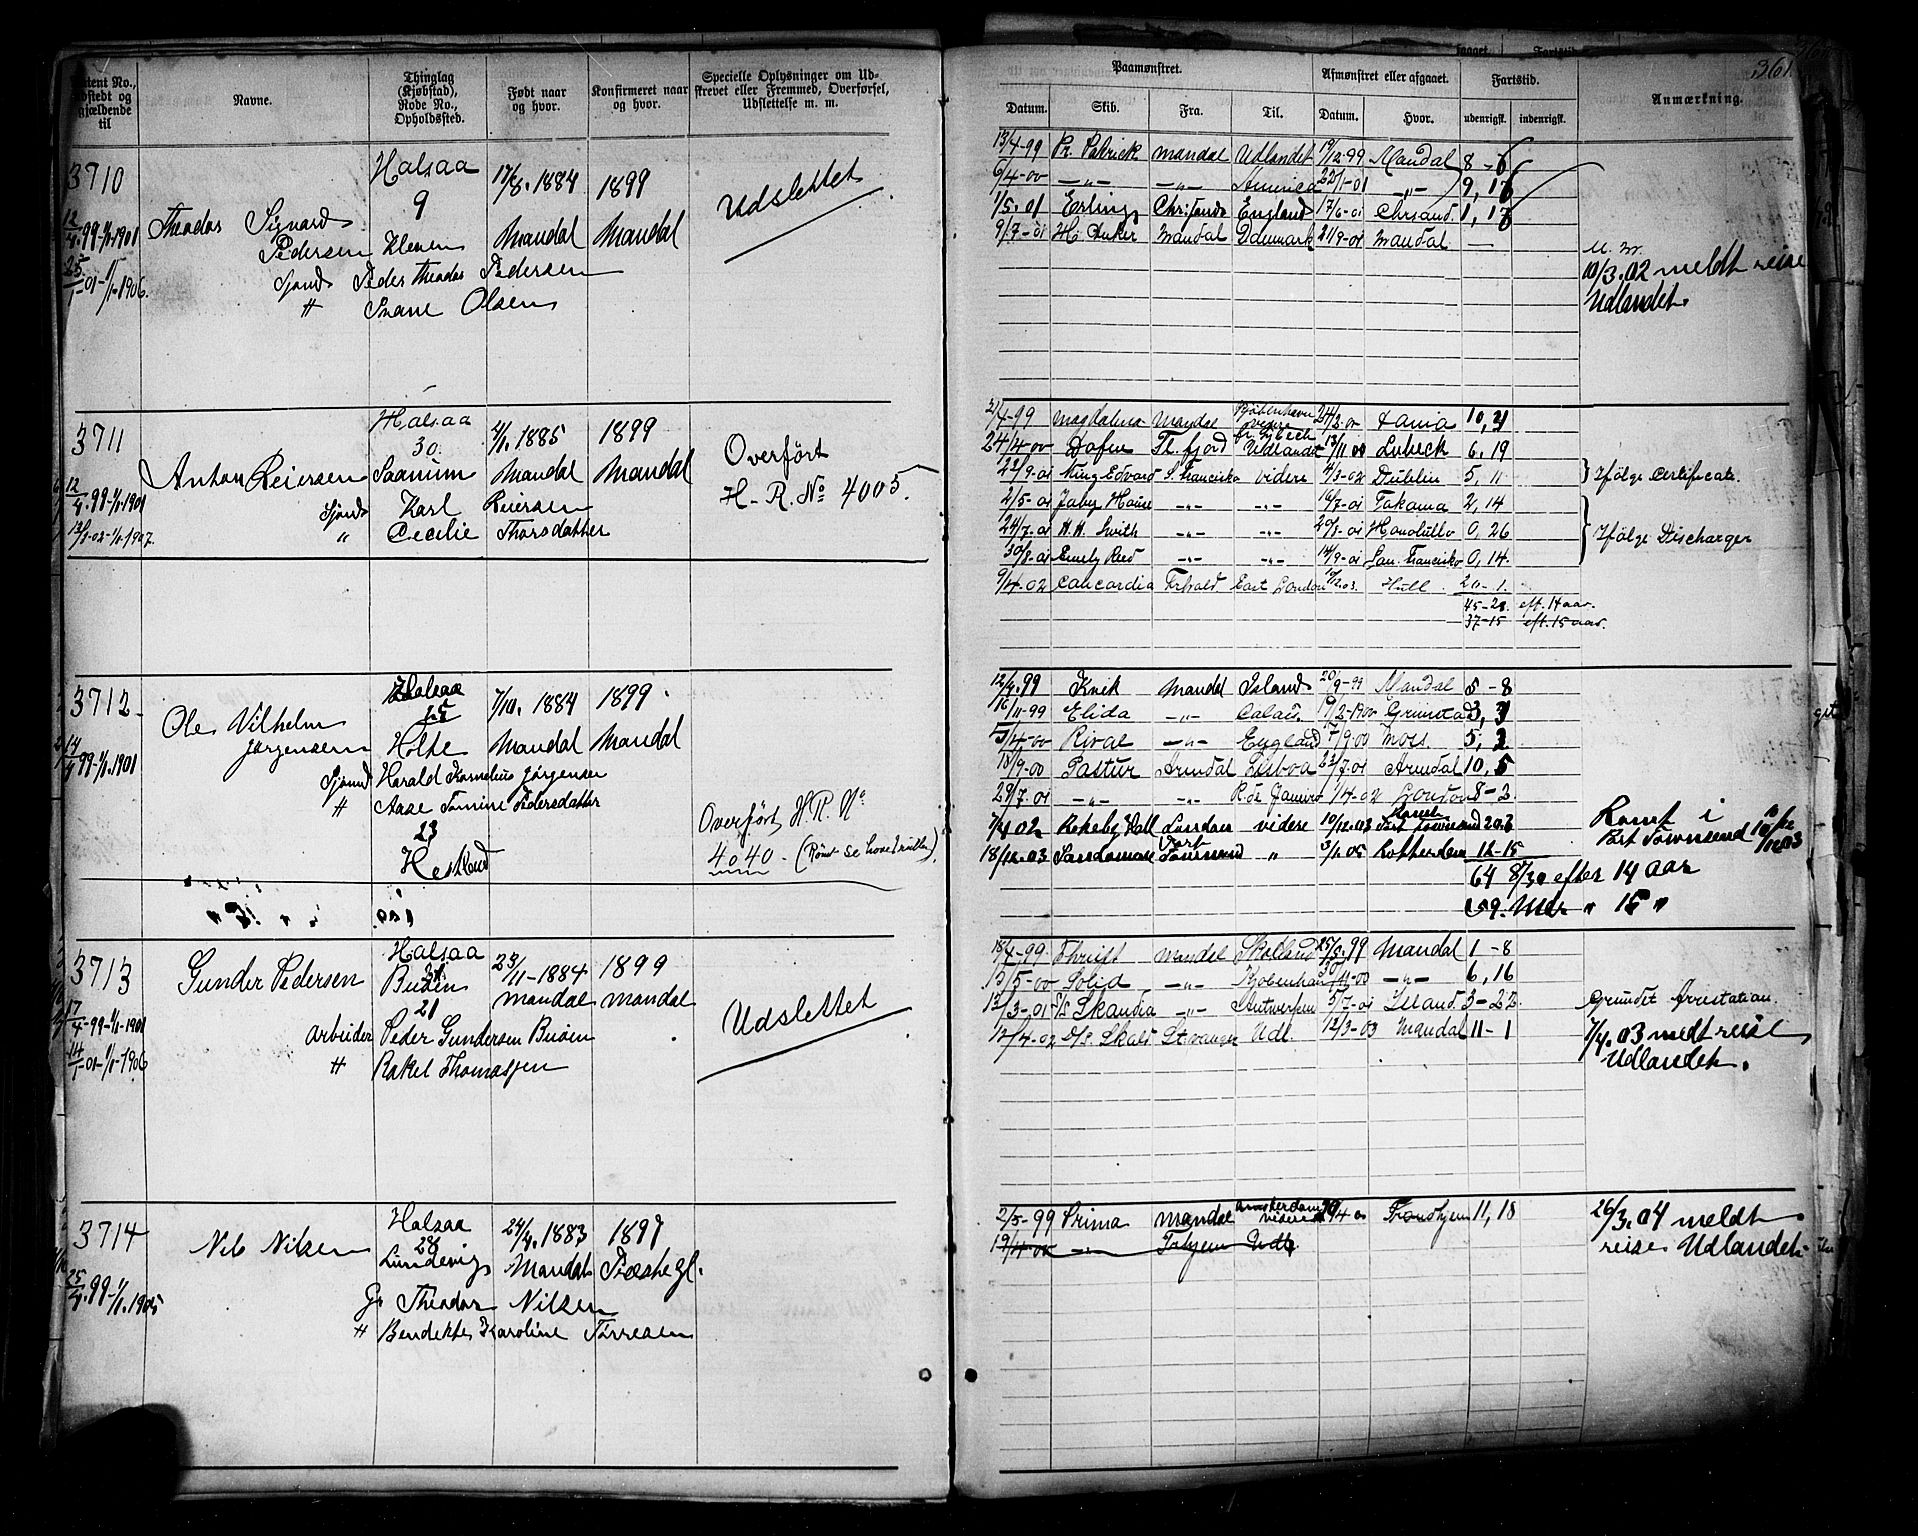 361.
Patent No., udstedt og gjældende til
Navne.
Thinglag (Kjøbstad), Rode No., Opholdssted.
Født naar og hvor.
Konfirmeret naar og hvor.
Specielle Oplysninger om Udskrevet eller Fremmed, Overførsel, Udslettelse m. m.
Paamønstret.
Afmønstret eller afgaaet.
Fartstid.
Anmærkning.
Datum.
Skib.
Fra.
Til.
Datum.
Hvor.
udenrigsk.
indenrigsk.
3710
12/4.99-1/1.1901
25/1-01-1/1-1906.
Theodor Sigvard Pedersen
Halsaa
9
Kleven
17/8.1884
Mandal
1899
Mandal
Udslettet
Sjømd Peder Theodor Pedersen
" Svane Olsen
13/4-99 Pr. Patrick Mandal Udlandet 19/12-99 Mandal 8-6
6/4-00 -"- -"- America 22/1-01 -"- 9,17
1/5.01 Erling Chr.sand England 17/6-01 Chrsand. 1,17
9/7-01 H. Anker Mandal Danmark 21/9-01 Mandal -
10/3.02 meldt reise
Udlandet.
3711
12/4.99-1/1-1901
13/1-02-1/1-1907.
Anton Reiersen
Halsaa
30.
Saanum
4/1.1885
Mandal
1899
Mandal
Overført
H-R. No 4005.
Sjømd Karl Reiersen
" Cecilie Thorsdatter
21/4-99 Magdalena Mandal Kjøbenhavn videre 24/2-00 10,
24/4-00 Dafne Fl.fjord Udlandet 13/11 00 Lubeck 6,19
22/9-01 King Edvard S. Francisko videre 4/3-02 Dublin 5,11
2/5-01 -"- -"- 16/7-01 Takoma 2,14
24/7-01 H. H. Smith -"- -"- 20/8-01 Honolullo 0,26
30/8-01 Emely Reed -"- -"- 14/9-01 San. Francisko 0,14.
9/4-02 Concordia East London Hull 20-1.
Ifølge Certificate.
Ifølge Discharger
45-28. eft. 14 aar.
37-15 eft. 15 aar.
3712
14/4-99-1/1.1901
Ole Vilhelm Jørgensen
Halsaa
25
Holte
7/10.1884
Mandal
1899
Mandal
Sjømd Harald Kornelius Jørgensen
" Aase Tomine Pedersdatter
23
Overført H.R. No
4040 - (Rømt se hovedrullen).
12/4.99 Kvik Mandal Island 20/9-99 Mandal 5-8
16/11-99 Elida -"- Calais 9/2-1900 Grimstad 3,
5/4-00 Rival -"- England 7/9.00 Moss. 5,
18/9-00 Pastur Arendal Lisboa 23/7-01 Arendal 10,5
29/7.01 -"- -"- R. de Janeiro /4-02 London 8-2
7/4 02 Rokeby Hall London videre 10/12.03 Port Townsend 20.
18/12.03 Port Townsend " 3/1.05 Rotterdam 12-15
Rømt i
Port Townsend 10/12 03
64 8/30 efter 14 aar
59. " 15 "
3713
17/4-99-1/1-1901
14/1-01-1/1-1906
Gunder Pedersen
Halsaa
Buøen
21
23/11-1884
Mandal
1899
Mandal
Udslettet
Arbeider Peder Gundersen Buøen
" Rakel Thomassen
18/4-99 Thrift Mandal Skotland 25/5.99 Mandal 1-8
13/5-00 Solid -"- Kjøbenhavn 30/11-00 -"- 6,16
12/3-01 S/S Skandia -"- Antwerpen 5/7-01 Island. 3-22
12/4-02 D/S. Skald Stavanger Udl. 12/3-03 Mandal 11-1
Grundet Arrestation.
7/4.03 meldt reise
Udlandet.
3714
25/4.99-1/1.1905
Nils Nilsen
Halsaa
28
Lundevig
24/4.1883
Mandal
1897
Præstegl.
Gr Theodor Nilsen
" Bendikte Karoline Torresen
2/5-99 Prima Mandal Amsterdam videre Trondhjem 11,18
19/4-00 -"- Trhjem Udl.
26/3.04 meldt
reise Udlandet.